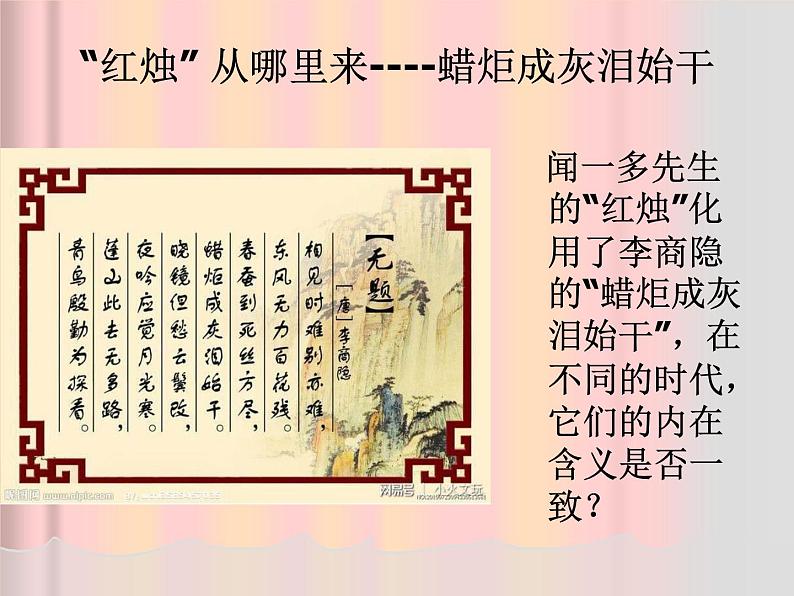 “红烛” 从哪里来----蜡炬成灰泪始干
【无题】
［唐］李商隐
相见时难别亦难，
东风无力百花残。
春蚕到死丝方尽，
蜡炬成灰泪始干。
晓镜但愁云鬓改，
夜吟应觉月光寒。
蓬山此去无多路，
青鸟殷勤为探看。
昵图网 www.nipic.com
网易号 小火文玩
闻一多先生
的“红烛”化
用了李商隐
的“蜡炬成灰
泪始干”，在
不同的时代，
它们的内在
含义是否一
致？